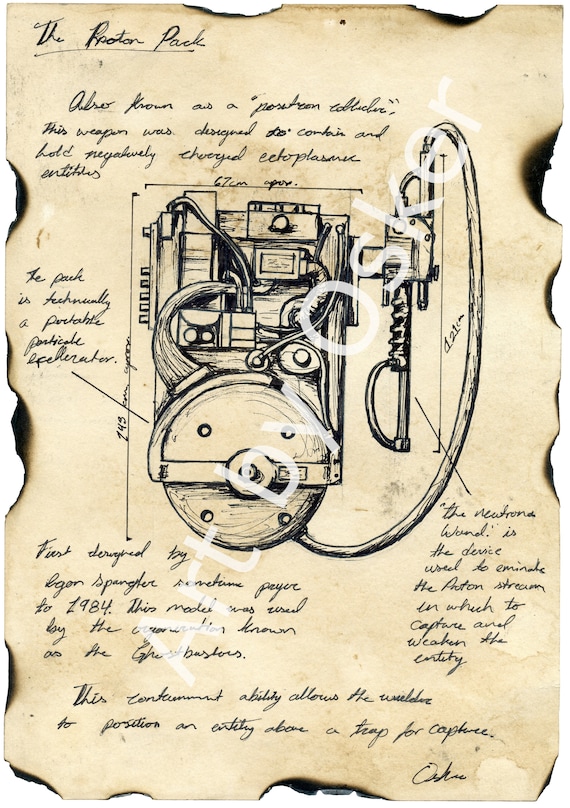 The Proton Pack
Also known as a "positron collider",
this weapon was designed to contain and
hold negatively charged ectoplasmic
entities
67cm apox.
The pack
is technically
a portable
particle
excellerator.
"the neutrona
Wand." is
the device
used to eminate
the Proton stream
in which to
capture and
weaken the
entity
First designed by
Egon Spangler sometime
to 1984. This model was used
by the organization known
as the Ghostbusters.
This containment ability allows the wielder
to position an entity above a trap for capture.
Osker
Art by Osker